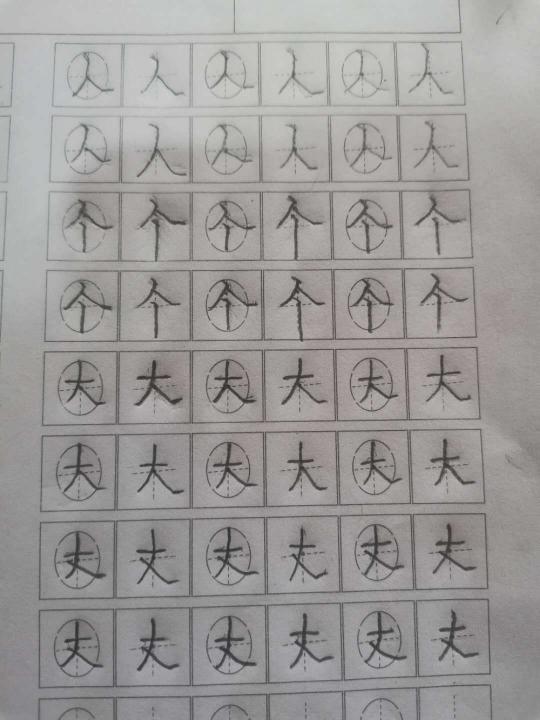 人 人 人 人 人 人
人 人 人 人 人 人
个 个 个 个 个 个
个 个 个 个 个 个
大 大 大 大 大 大
大 大 大 大 大 大
丈 丈 丈 丈 丈 丈
丈 丈 丈 丈 丈 丈